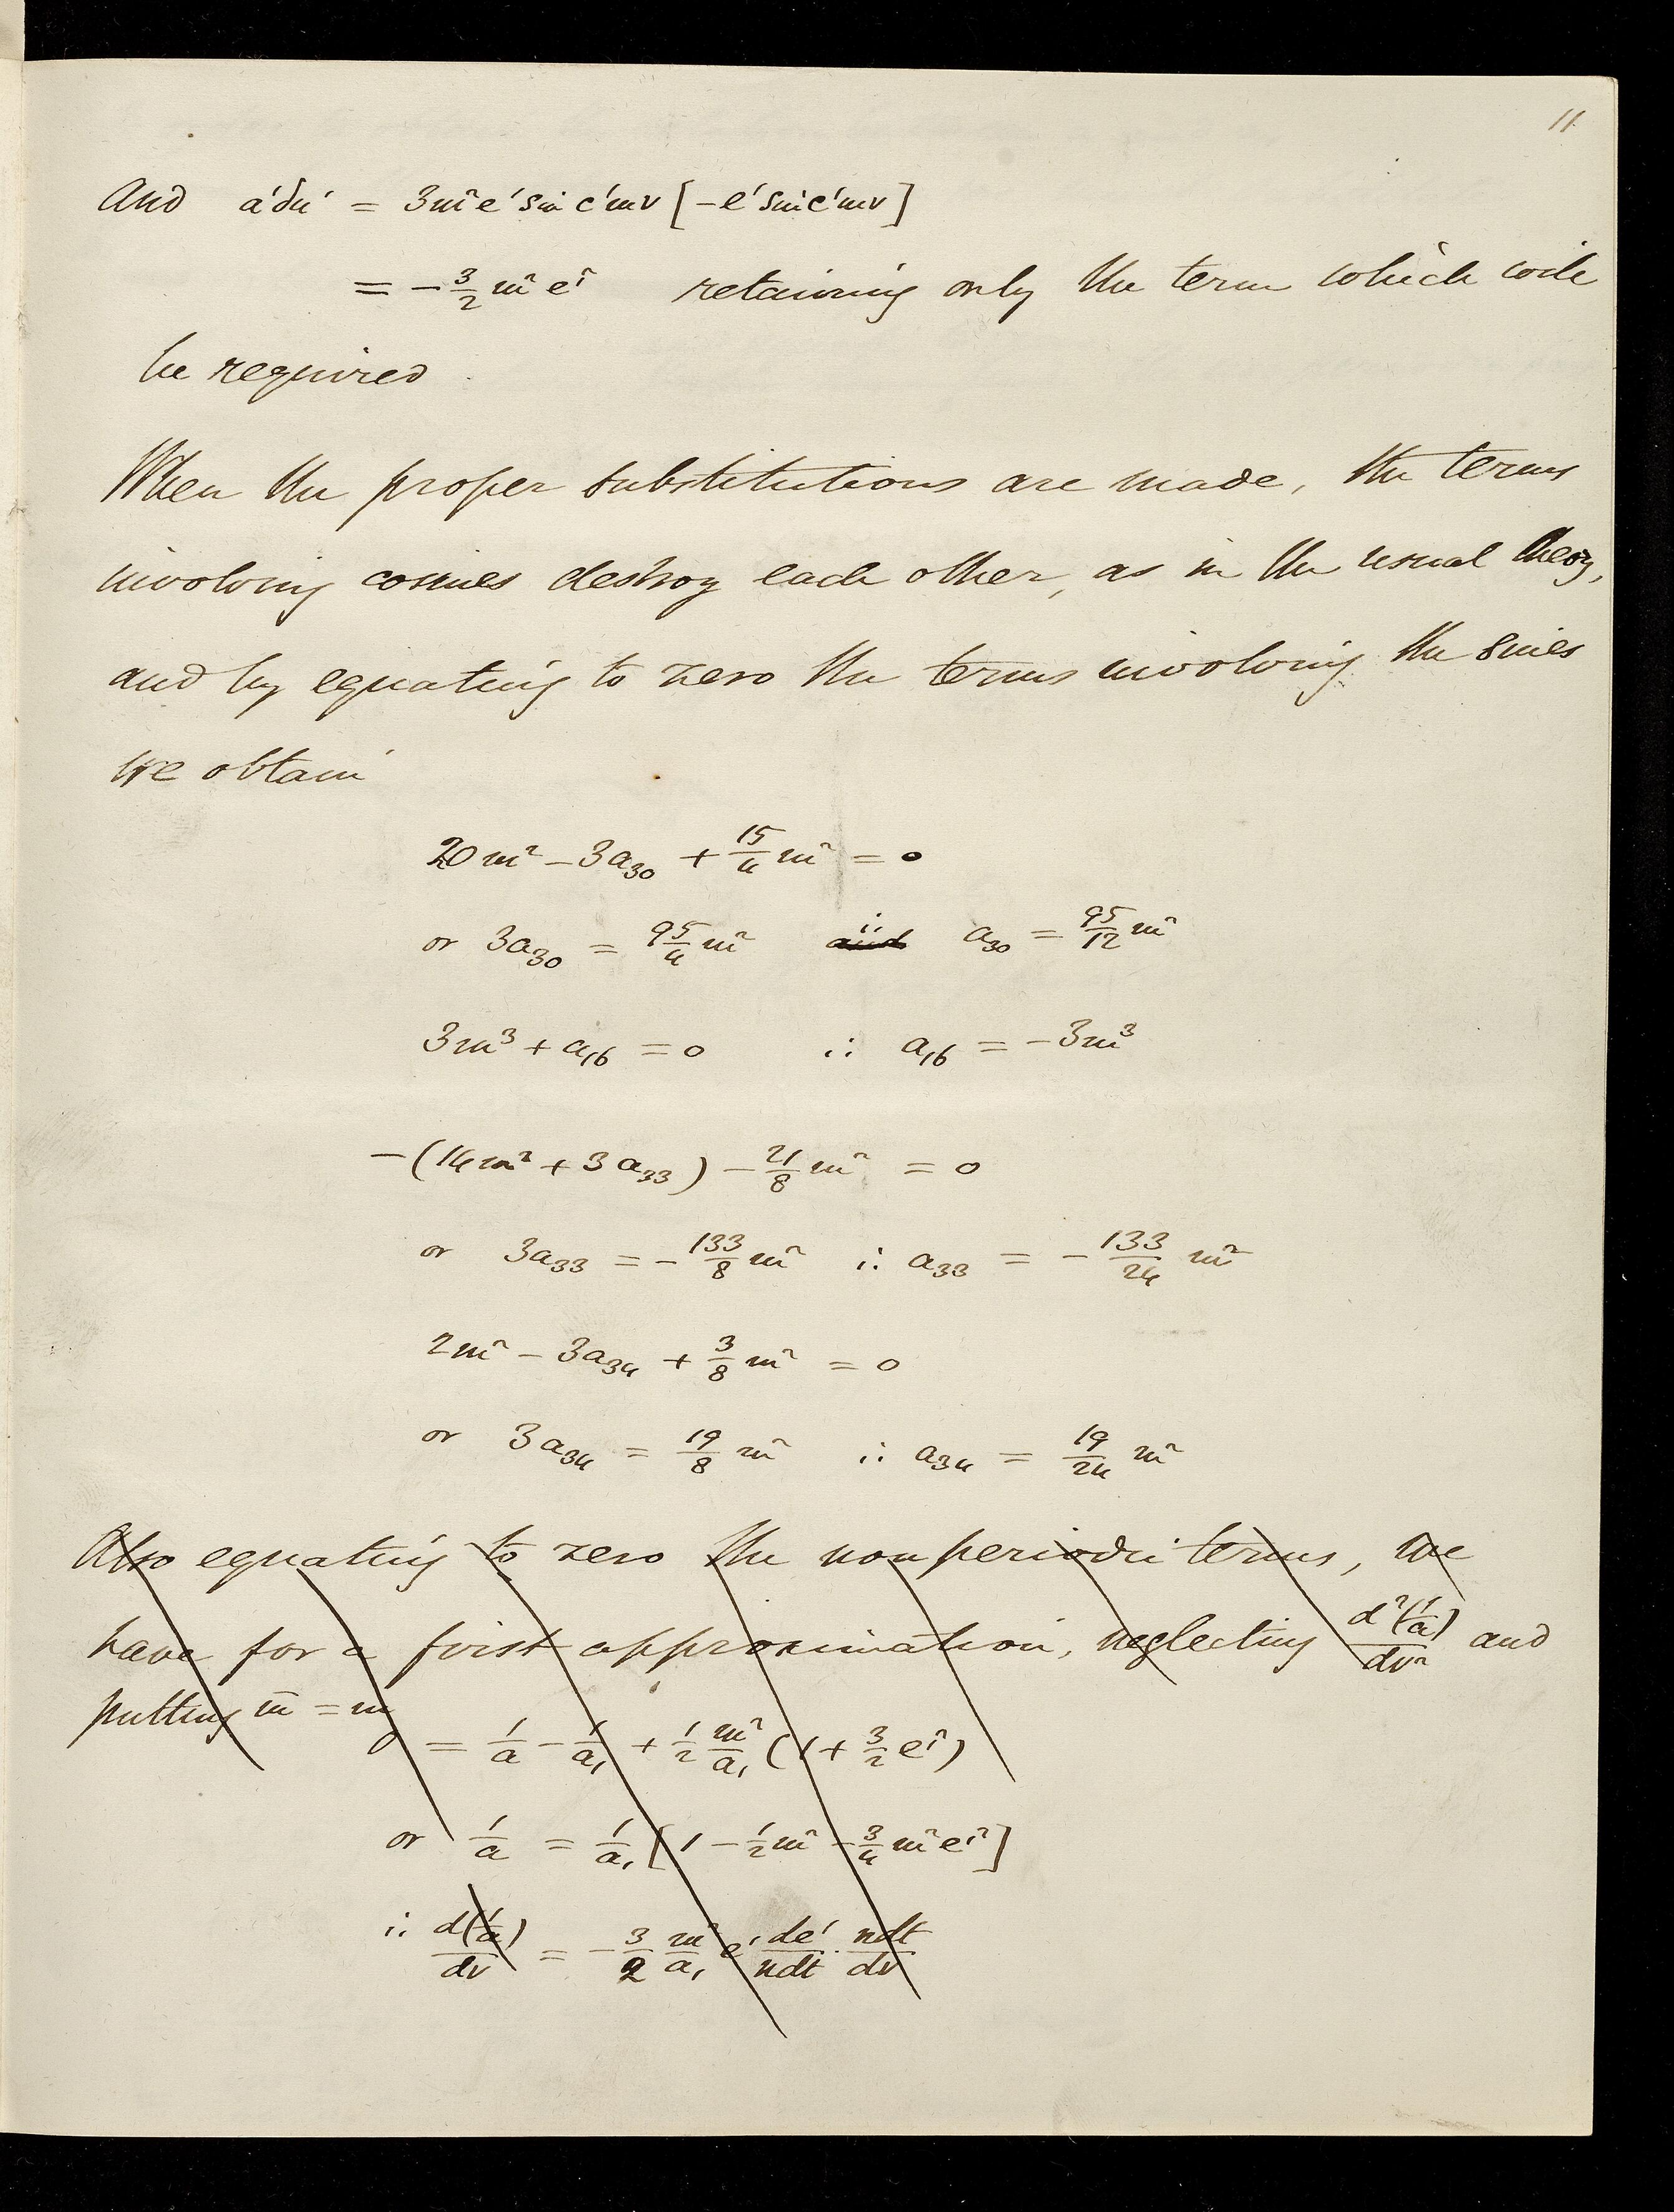 11
And a'δu' = 3m²e' sin c'mν [−e' sin c'mν]
= −3/2 m² e'² retaining only the term which will
be required.
When the proper substitutions are made, the terms
involving cosines destroy each other, as in the usual theory,
and by equating to zero the terms involving the sines
we obtain
20m² − 3a₃₀ + 15/4 m² = 0
or 3a₃₀ = 95/4 m² ∴ a₃₀ = 95/12 m²
3m³ + a₁₆ = 0 ∴ a₁₆ = −3m³
−(14m² + 3a₃₃) − 21/8 m² = 0
or 3a₃₃ = −133/8 m² ∴ a₃₃ = −133/24 m²
2m² − 3a₃₄ + 3/8 m² = 0
or 3a₃₄ = 19/8 m² ∴ a₃₄ = 19/24 m²
Also equating to zero the non periodic terms, we
have for a first approximation, neglecting d²(1/a)/dν² and
putting m̄ = m
0 = 1/a − 1/a₁ + 1/2 m²/a₁ (1 + 3/2 e'²)
or 1/a = 1/a₁ [1 − 1/2 m² − 3/4 m² e'²]
∴ d(1/a)/dν = −3/2 m²/a₁ e' de'/ndt · ndt/dν